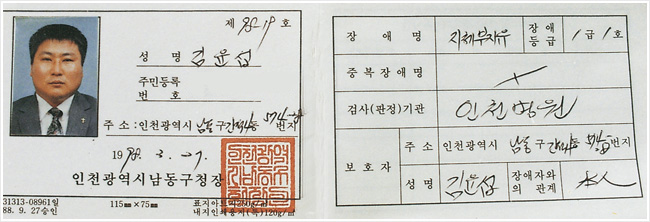 제 98-19 호
성 명 김윤섭
주민등록
번 호
주 소 : 인천광역시 남동구 간석4동 번지
1998. 3. 27.
인천광역시남동구청장
31313-08961일
88. 9. 27승인
115㎜×75㎜
표지아트지260g/㎡
내지인쇄용지(특)120g/㎡
장 애 명 지체부자유 장애등급 1급 1호
중복장애명
검사(판정)기관 인천병원
보호자 주 소 인천광역시 남동구 간석4동 번지
성 명 김윤섭 장애자와의 관계 本人